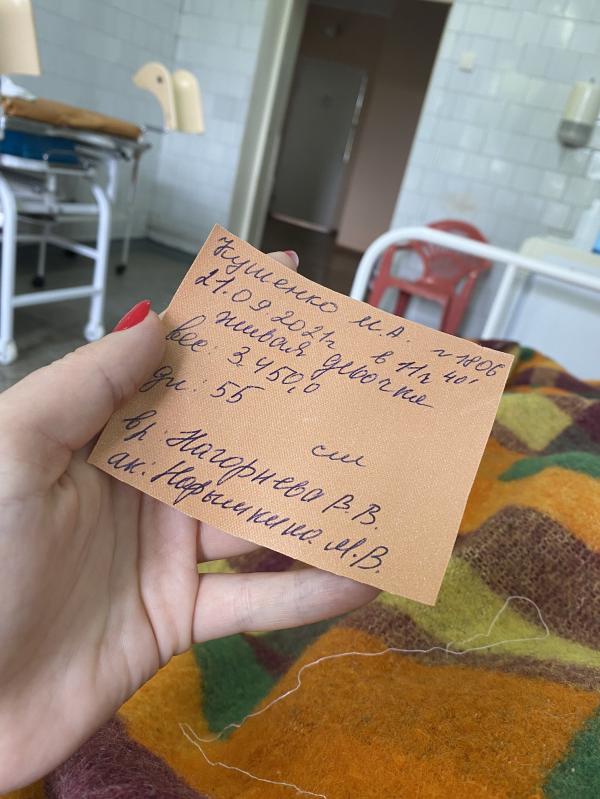 Кушенко М. А. н 1806
21.09.2021г в 11ч 40'
живая девочка
вес: 3.450,0
дл: 55 см
вр: Нагорнева В.В.
ак: Нарышкина М.В.